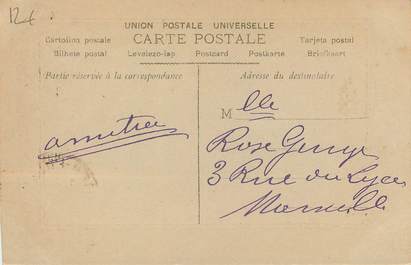 12€
UNION POSTALE UNIVERSELLE
CARTE POSTALE
Cartolina postale
Tarjeta postal
Bilhete postal
Levelezo-lap
Postcard
Postkarte
Briefkaart
Partie réservée à la correspondance
Adresse du destinataire
Mlle
Rose
3 Rue du Lycée
Marseille